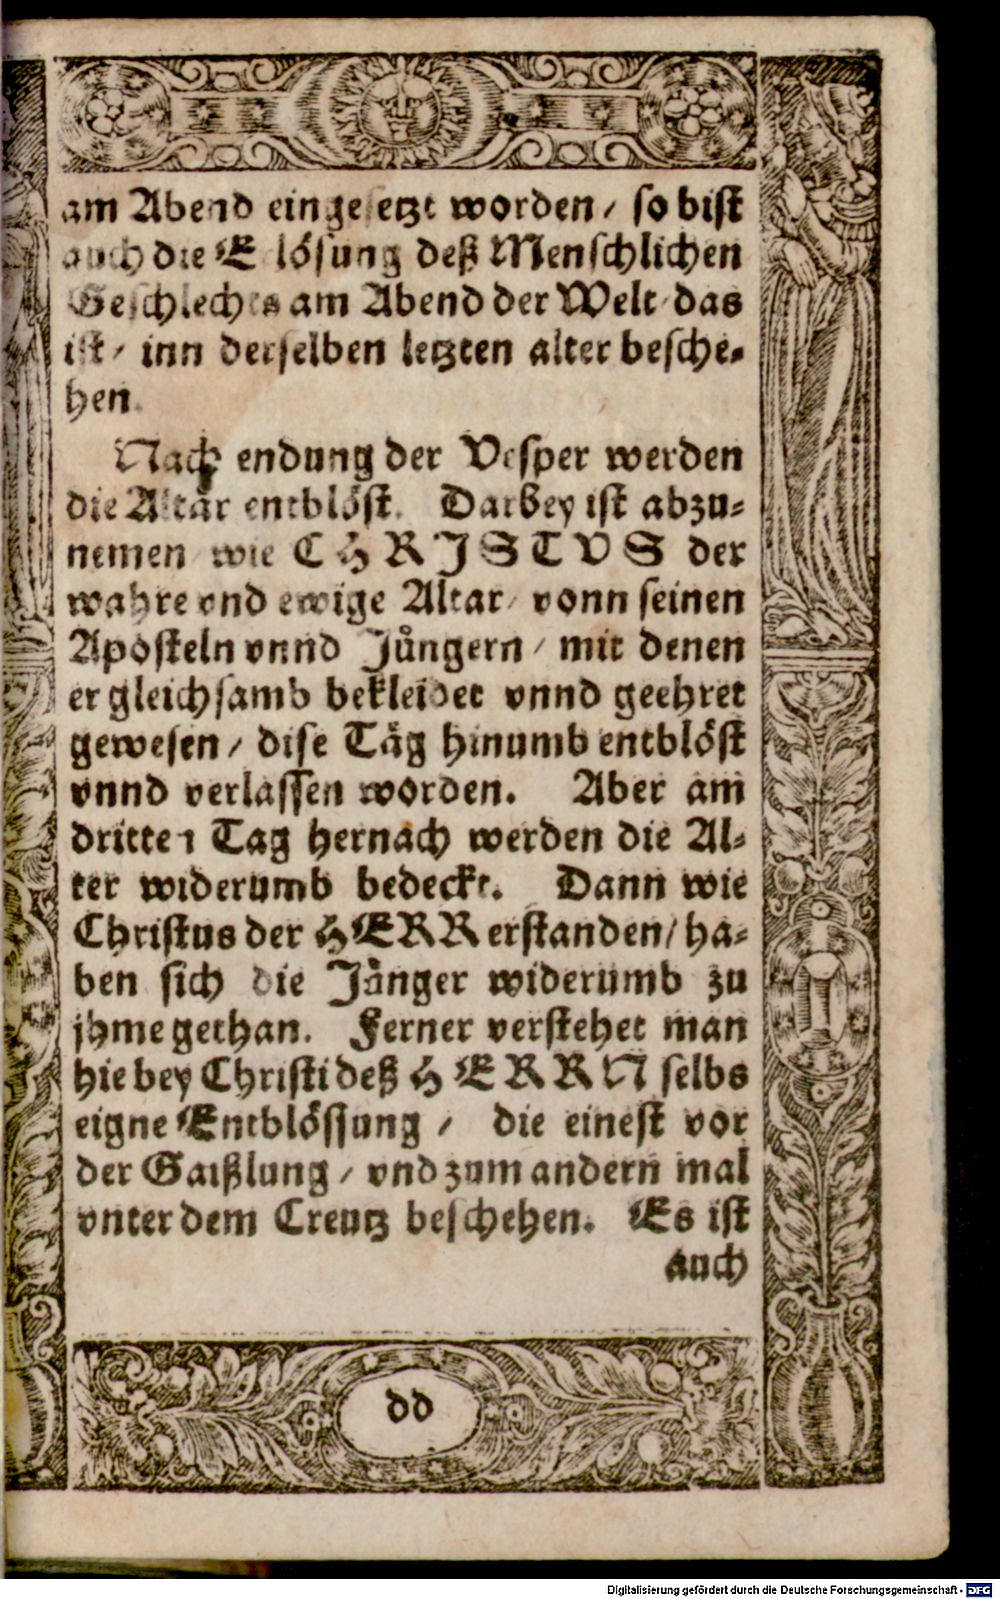 am Abend eingesetzt worden / so bist
auch die Erlösung deß Menschlichen
Geschlechts am Abend der Welt / das
ist / inn derselben letzten alter besche-
hen.
Nach endung der Vesper werden
die Altar entblöst. Darbey ist abzu-
nemen wie CHRJSTVS der
wahre vnd ewige Altar / vonn seinen
Aposteln vnnd Jůngern / mit denen
er gleichsamb bekleidet vnnd geehret
gewesen / dise Täg hinumb entblöst
vnnd verlassen worden. Aber am
dritten Tag hernach werden die Al-
ter widerumb bedeckt. Dann wie
Christus der HERR erstanden / ha-
ben sich die Jůnger widerumb zu
jhme gethan. Ferner verstehet man
hie bey Christi deß HERRN selbs
eigne Entblössung / die einest vor
der Gaißlung / vnd zum andern mal
vnter dem Creutz beschehen. Es ist
auch
dd
Digitalisierung gefördert durch die Deutsche Forschungsgemeinschaft - DFG